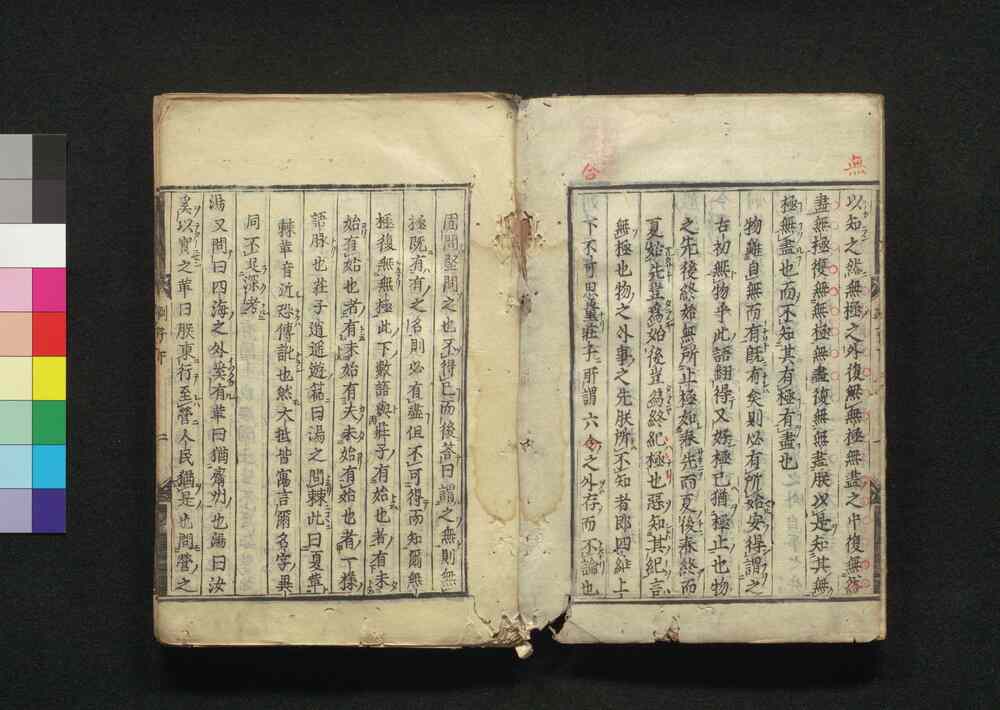 無
以知之然無極之外復無無極無盡之中復無無
盡無極復無無極無盡復無無盡朕以是知其無
極無盡也而不知其有極有盡也
物雖自無而有既有矣則必有所始安得謂之
古初無物乎此語紐得又好極已猶極止也物
之先後終始無所止極如春先而夏後春終而
夏始先豈為始後豈為終紀極也惡知其紀言
無極也物之外事之先朕所不知者即四維上
下不可思量莊子所謂六合之外存而不論也
合
固問堅問之也不得已而後答曰謂之無則無
極既有有之名則必有盡但不可得而知爾無
極復無無極此下數語與莊子有始也者有未
始有始也者有未始有夫未始有始也者一樣
語脉也莊子逍遙遊篇曰湯之問棘此曰夏革
棘革音近恐傳訛也然大抵皆寓言爾名字異
同不足深考
湯又問曰四海之外奚有革曰猶齊州也湯曰汝
奚以實之革曰朕東行至營人民猶是也問營之